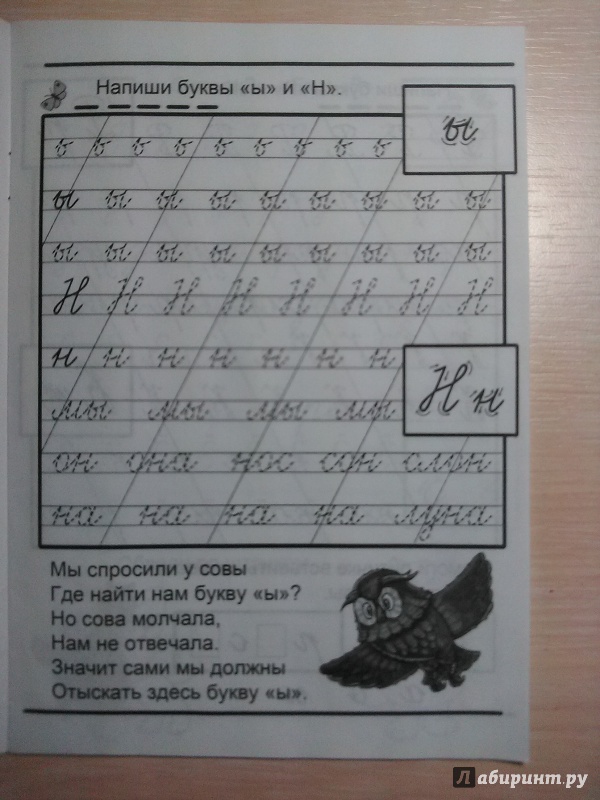 Напиши буквы «ы» и «Н».
ы
ь ь ь ь ь ь ь ь ь
ы ы ы ы ы ы ы ы ы
ы ы ы ы ы ы ы ы ы
Н Н Н Н Н Н Н Н
н н н н н н н
Н н
мы мы мы мы
он она нос сон слон
на на на на луна
Мы спросили у совы
Где найти нам букву «ы»?
Но сова молчала,
Нам не отвечала.
Значит сами мы должны
Отыскать здесь букву «ы».
Лабиринт.ру